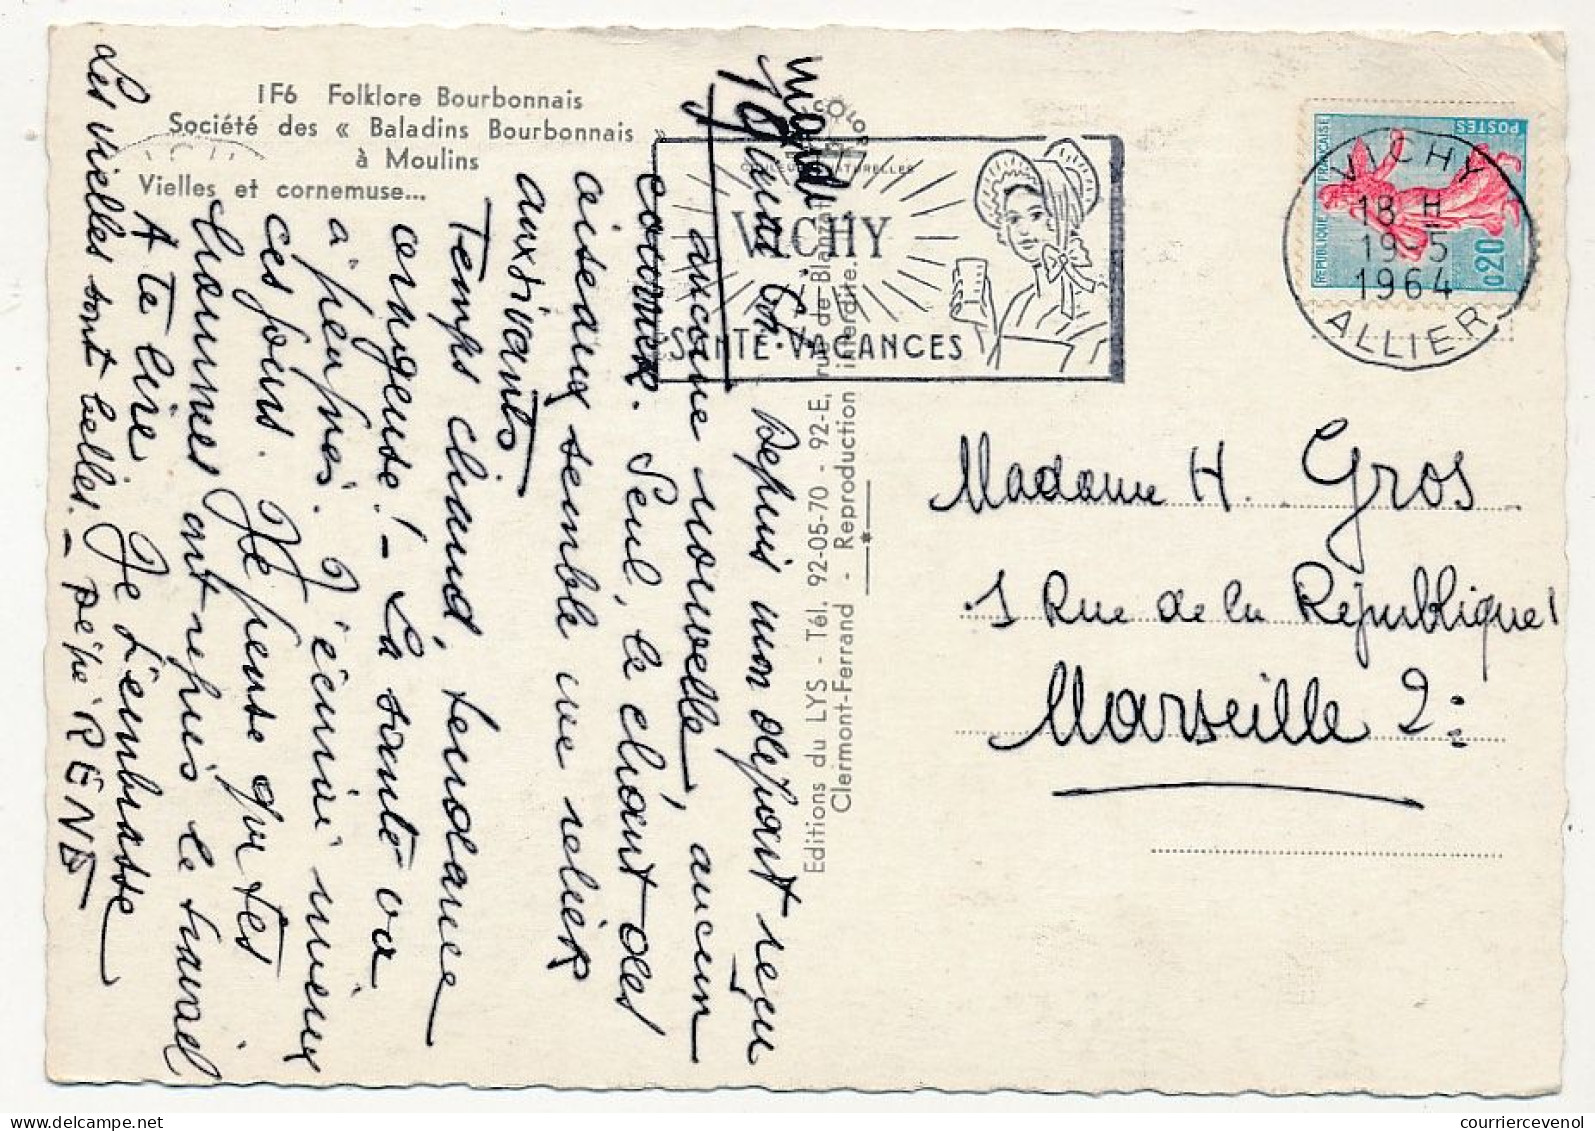 1F6 Folklore Bourbonnais
Société des « Baladins Bourbonnais »
à Moulins
Vielles et cornemuse...
mardi
19 mai 64.
Depuis mon départ reçu
aucune nouvelle, aucun
courrier. Seul, le chant des
oiseaux semble me relier
aux vivants
Temps chaud, tendance
orageuse! - La santé va
à peu près. J'écrirai mieux
ces jours. Je pense que tes
hommes ont repris le travail
A te lire. Je t'embrasse
Les vielles sont belles. - Pépé RENÉ
COLOR
COULEURS NATURELLES
VICHY
SANTE·VACANCES
VICHY
18 H
19-5
1964
ALLIER
REPUBLIQUE FRANÇAISE
POSTES
0,20
Editions du LYS - Tél. 92-05-70 - 92-E, rue de Blanzat
Clermont-Ferrand - Reproduction interdite.
Madame H. Gros
1 Rue de la République
Marseille 2:
courriercevenol